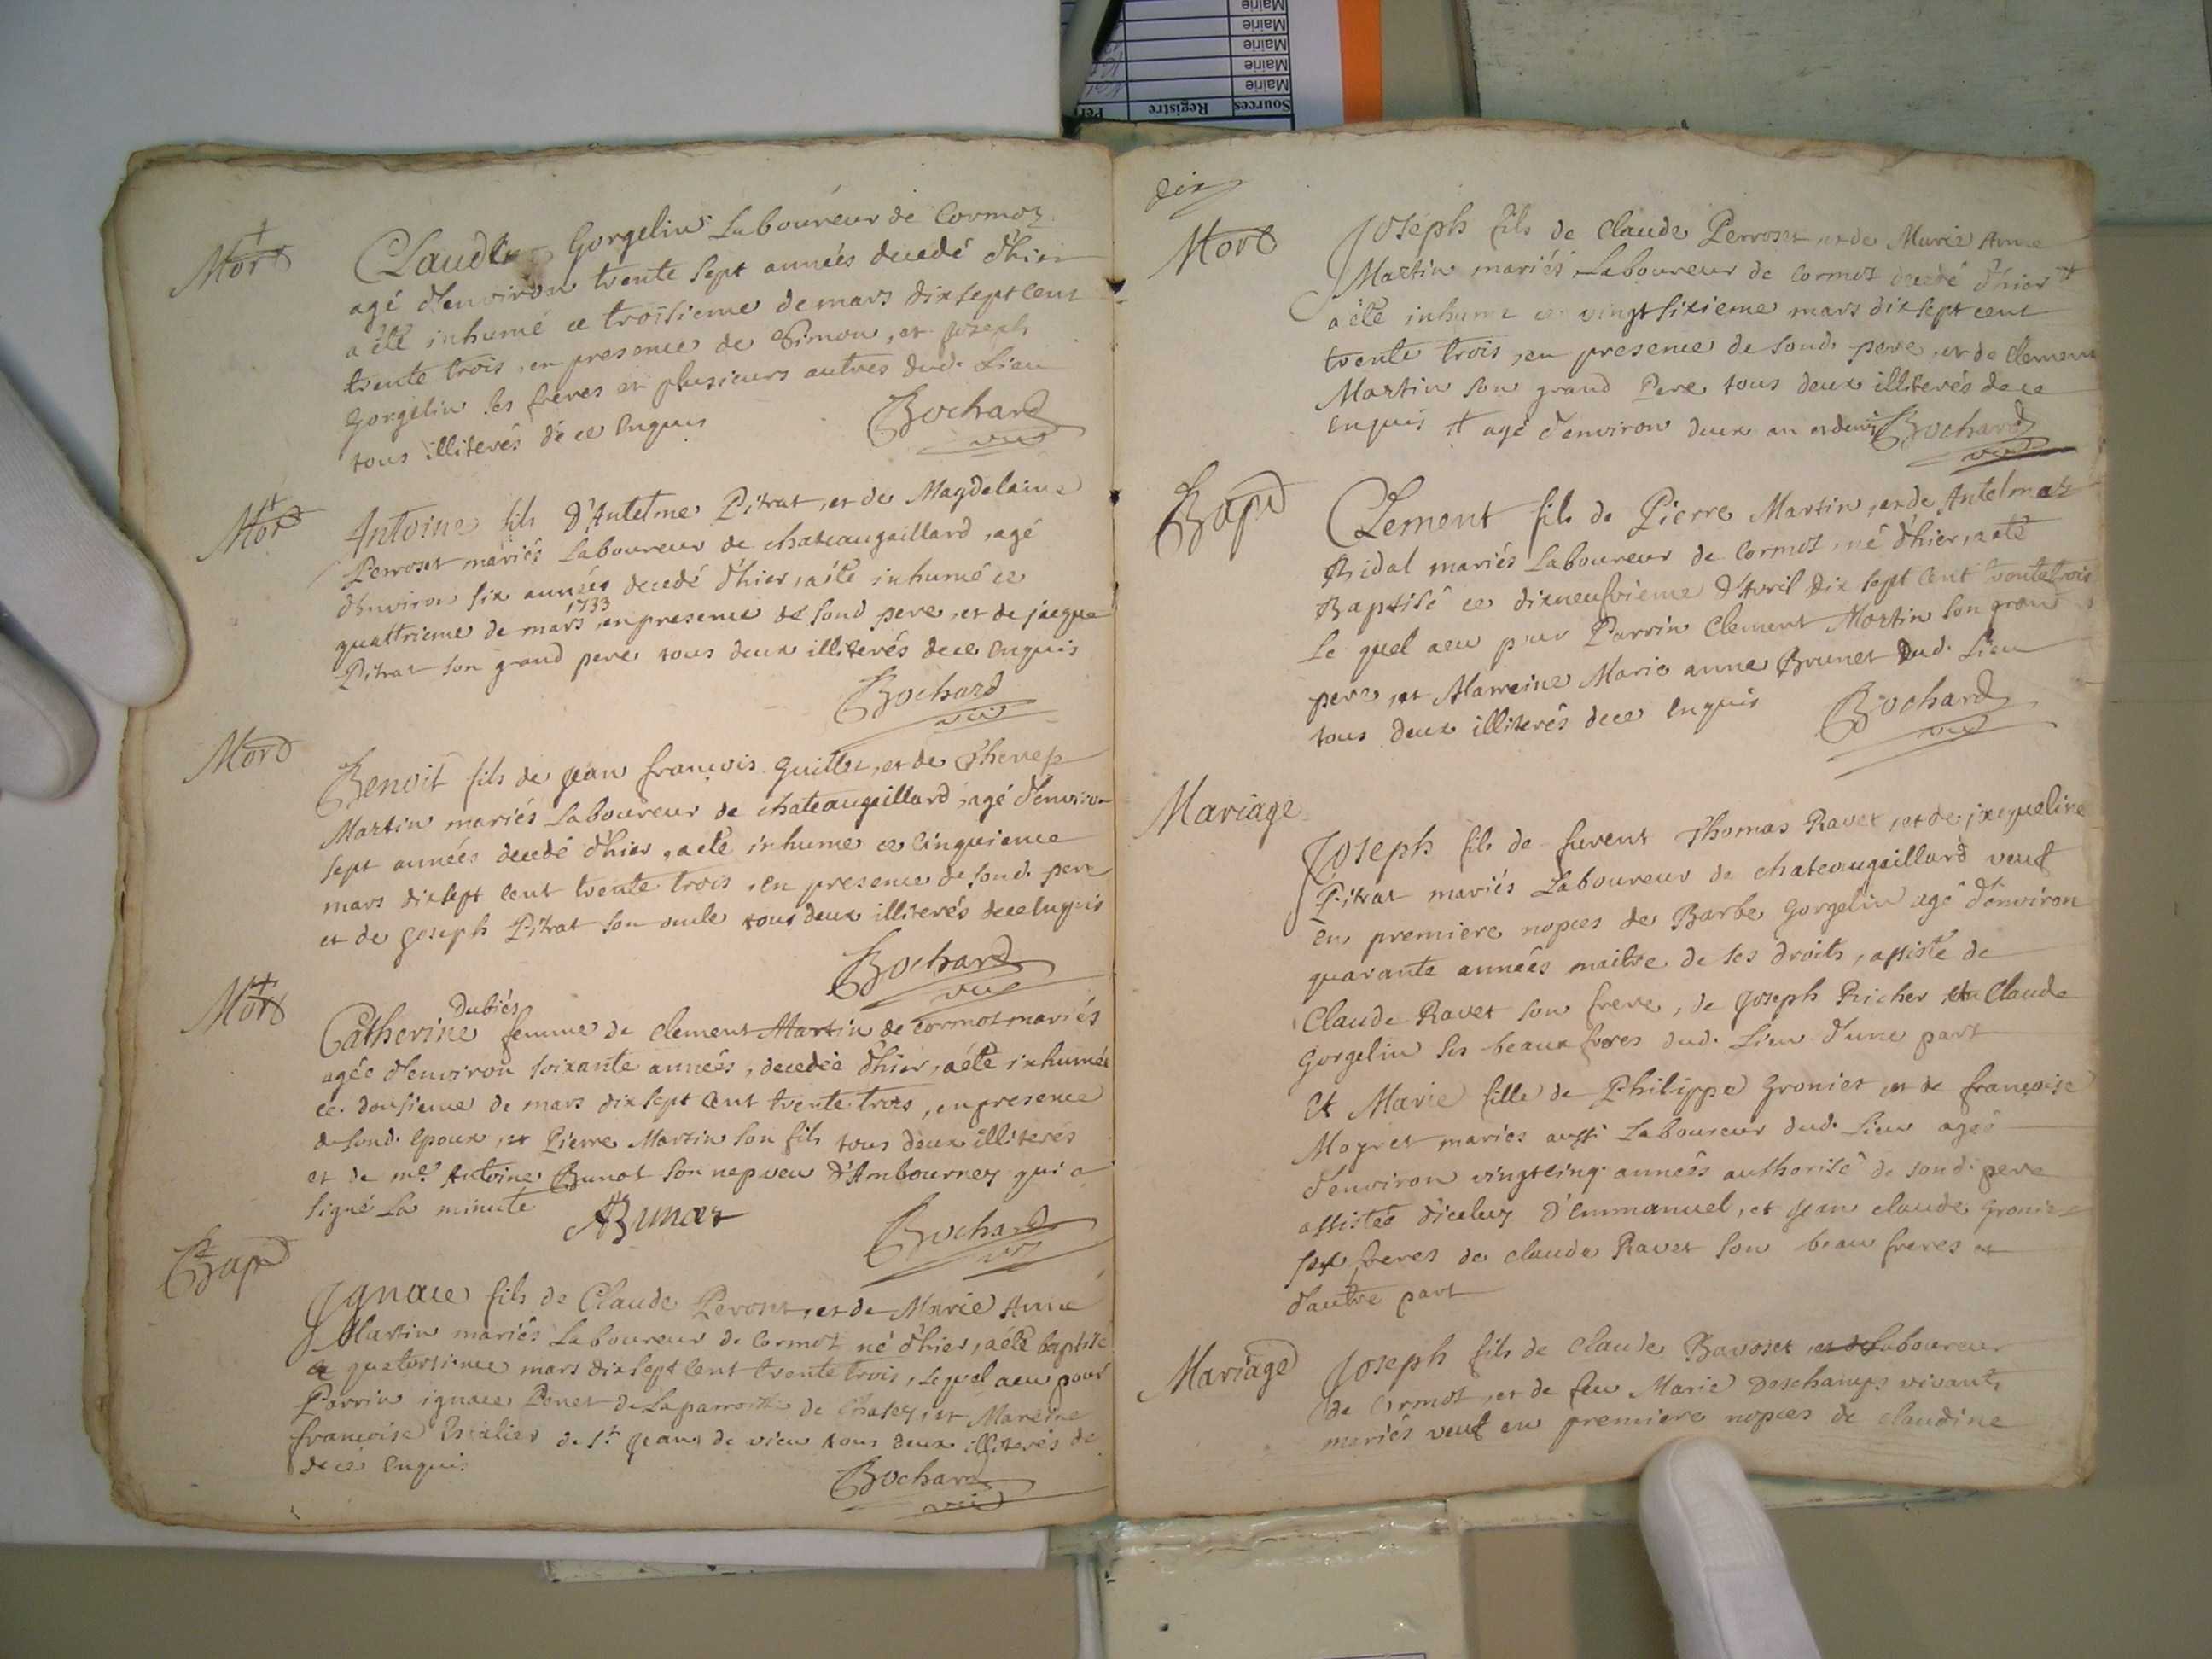 Mort
Claude Gorgelin Laboureur de Cormoz
agé d'environ trente sept années decedé d'hier
a été inhumé ce troisieme de mars dix sept cent
trente trois, en presence de Simon, et joseph
Gorgelin ses freres et plusieurs autres dud. Lieu
tous illiterés de ce Enquis
Bochard
vic
Mort
Antoine fils d'Antelme Pitrat, et de Magdelaine
Perroset mariés Laboureur de chateaugaillard, agé
d'Environ six années decedé d'hier, a été inhumé ce
quattrieme de mars 1733 en presence de sond pere, et de jacque
Pitrat son grand pere tous deux illiterés de ce Enquis
Bochard
vic
Mord
Benoit fils de jean françois Guillet, et de
Martin mariés Laboureur de chateaugaillard, agé d'environ
sept années decedé d'hier, a eté inhume ce Cinquieme
mars dix sept Cent trente trois, En presence de sond. pere
et de joseph Pitrat son oncle tous deux illiterés de ce Enquis
Bochard
vic
Mort
Dubiés
Catherine femme de clement Martin de Cormoz mariés
agée d'environ soixante années, decedée d'hier, a été inhumée
ce. dousieme de mars dix sept Cent trente trois, en presence
de sond. Epoux, et Pierre Martin son fils tous deux illiterés
et de me. Antoine Bunot son nepveu D'Ambournay qui a
signé La minute
ABunot
Bochard
vic
Bapt
Ignace fils de Claude Peroset, et de Marie Anne
Martin mariés Laboureur de Cormoz né d'hier, a été baptisé
ce quatorsieme mars dix sept Cent trente trois, Lequel a eu pour
Parrin ignace Penet de La parroisse de Chatey, et Mareine
françoise de st. jean de vieu tous deux illiterés de
de ce Enquis
Bochard
vic
dix
Mort
Joseph fils de Claude Perroset et de Marie Anne
Martin mariés Laboureur de Cormoz decedé d'hier #
a été inhume ce vingt sixieme mars dix sept cent
trente trois, en presence de sond. pere, et de Clement
Martin son grand Pere tous deux illiterés de ce
Enquis # agé d'environ deux an et demi Bochard
vic
Bapt
Clement fils de Pierre Martin, et de Antelmaz
Bidal mariés Laboureur de Cormoz, né d'hier, a eté
Baptisé ce dixneufvieme d'Avril dix sept Cent trente trois
Le quel a eu pour Parrin Clement Martin son grand
pere, et Marreine Marie anne Brunet dud. Lieu
tous deux illiterés de ce Enquis
Bochard
vic
Mariage
Joseph fils de furent Thomas Ravet, et de jacqueline
Pitrat mariés Laboureur de chateaugaillard veuf
En premiere nopces de Barbe Gorgelin agé d'environ
quarante années maitre de ses droits, assisté de
Claude Ravet son frere, de joseph Richer et Claude
Gorgelin ses beaux freres dud. Lieu d'une part
Et Marie fille de Philippe Gronier, et de françoise
Moyret maries aussi Laboureur dud. Lieu agée
d'environ vingt cinq années authorisé de sond. pere
assistée d'iceluy D'Emmanuel, et jean claude Gronier
ses freres de claude Ravet son beau freres et
d'autre part
Mariage
Joseph fils de Claude Bavoset et de Laboureur
de Cormoz, et de feu Marie Deschamps vivant
mariés veuf en premiere nopces de claudine
Sources Registre
Mairie
Mairie
Mairie
Mairie
Mairie